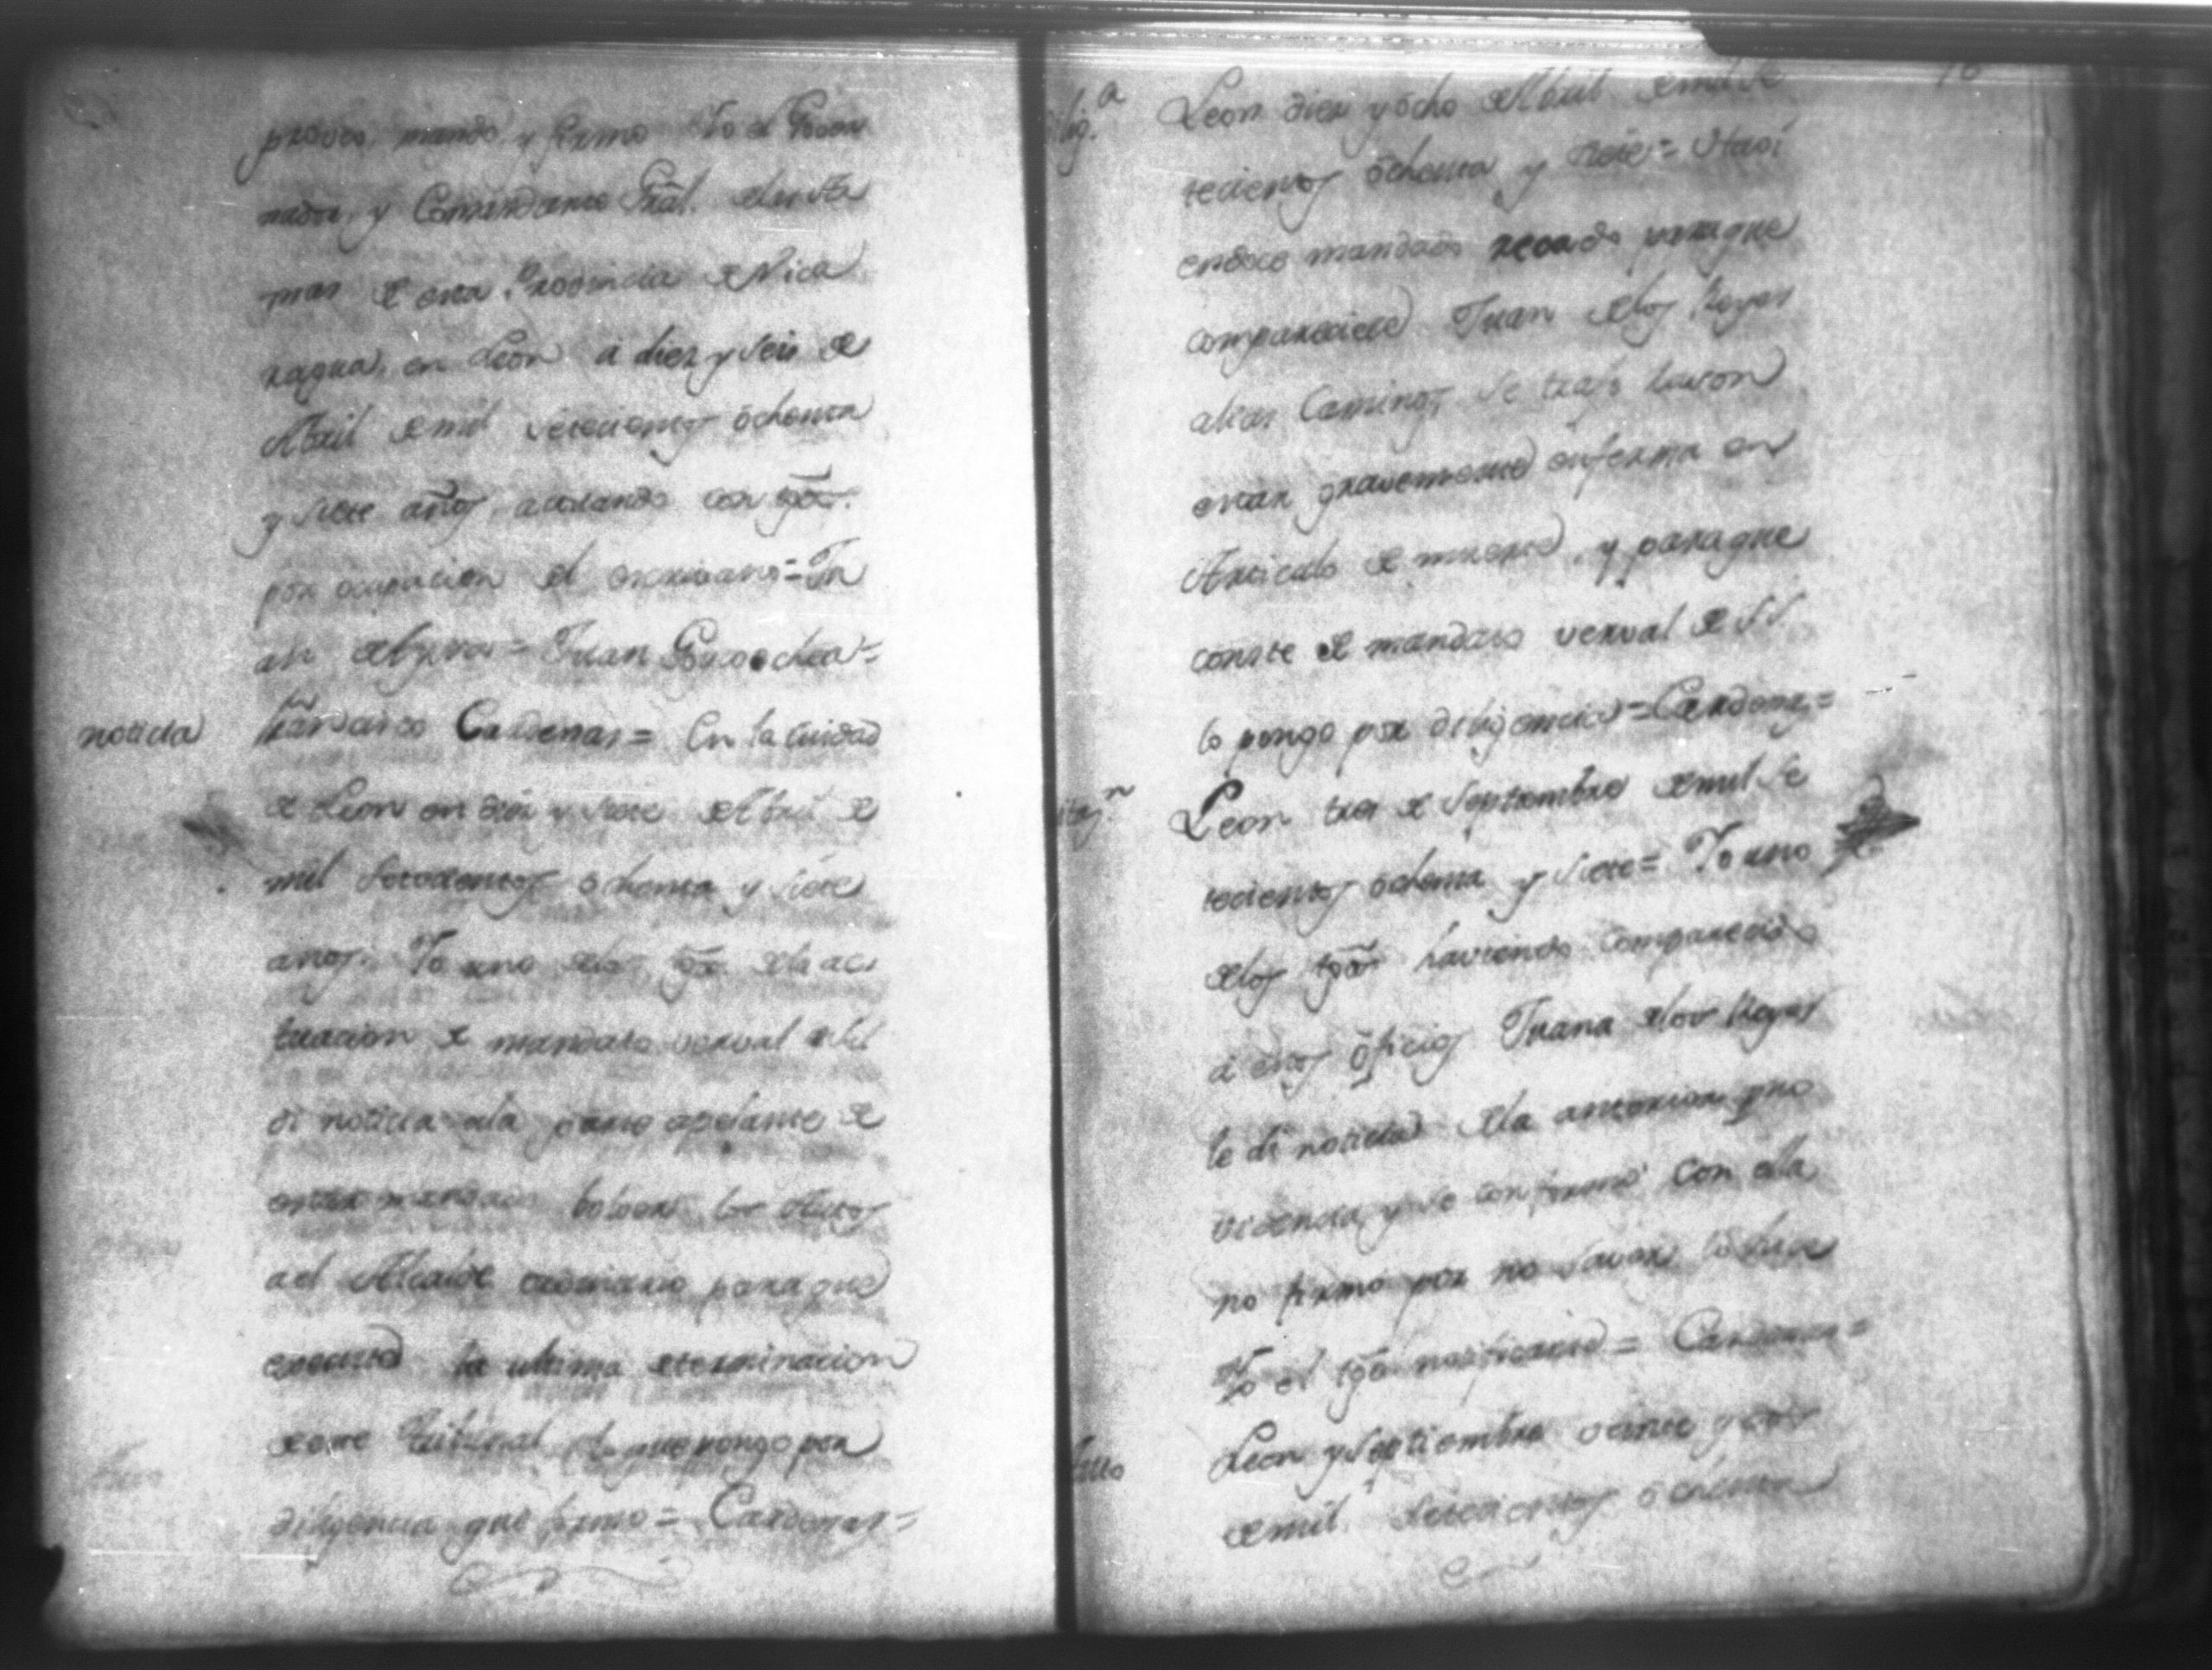 proveo, mando y firmo Yo el Gover
nador, y Comandante Gral. de las Ar
mas de esta Provincia de Nica
ragua, en Leon a diez y seis de
Abril de mil setecientos ochenta
y siete años, actuando con tgos.
por ocupacion del escrivano = Ju
an de Ayssa = Juan Goicoechea =
noticia
Cardenas = En la Ciudad
de Leon en diez y siete de Abril de
mil setecientos ochenta y siete
anos. Yo uno de los tgos de la ac
tuacion de mandato verval de
di noticia a la parte apelante de
estar mandado bolver los Autos
a el Alcalde ordinario para que
execute la ultima determinacion
de este Tribunal, lo que pongo por
diligencia que firmo = Cardenas =
lig.a
Leon diez y ocho de Abril de mil se
tecientos ochenta y siete =
endose mandado recado para que
compareciese Juan de los Reyes
alias Caminos, se trajo haron
estar gravemente enferma en
Articulo de muerte, y para que
conste de mandato verval de
lo pongo por diligencia = Cardenas =
Leon tres de Septiembre de mil se
tecientos ochenta y siete = Yo uno
de los tgos haviendo comparecido
a estos oficios Juana de los Reyes
le di noticia de la anterior pro
videncia, y se conformó con ella
no firmó por no saver, lo hice
Yo el tgo notificante = Cardenas =
Auto
Leon y Septiembre veinte y
de mil setecientos ochenta